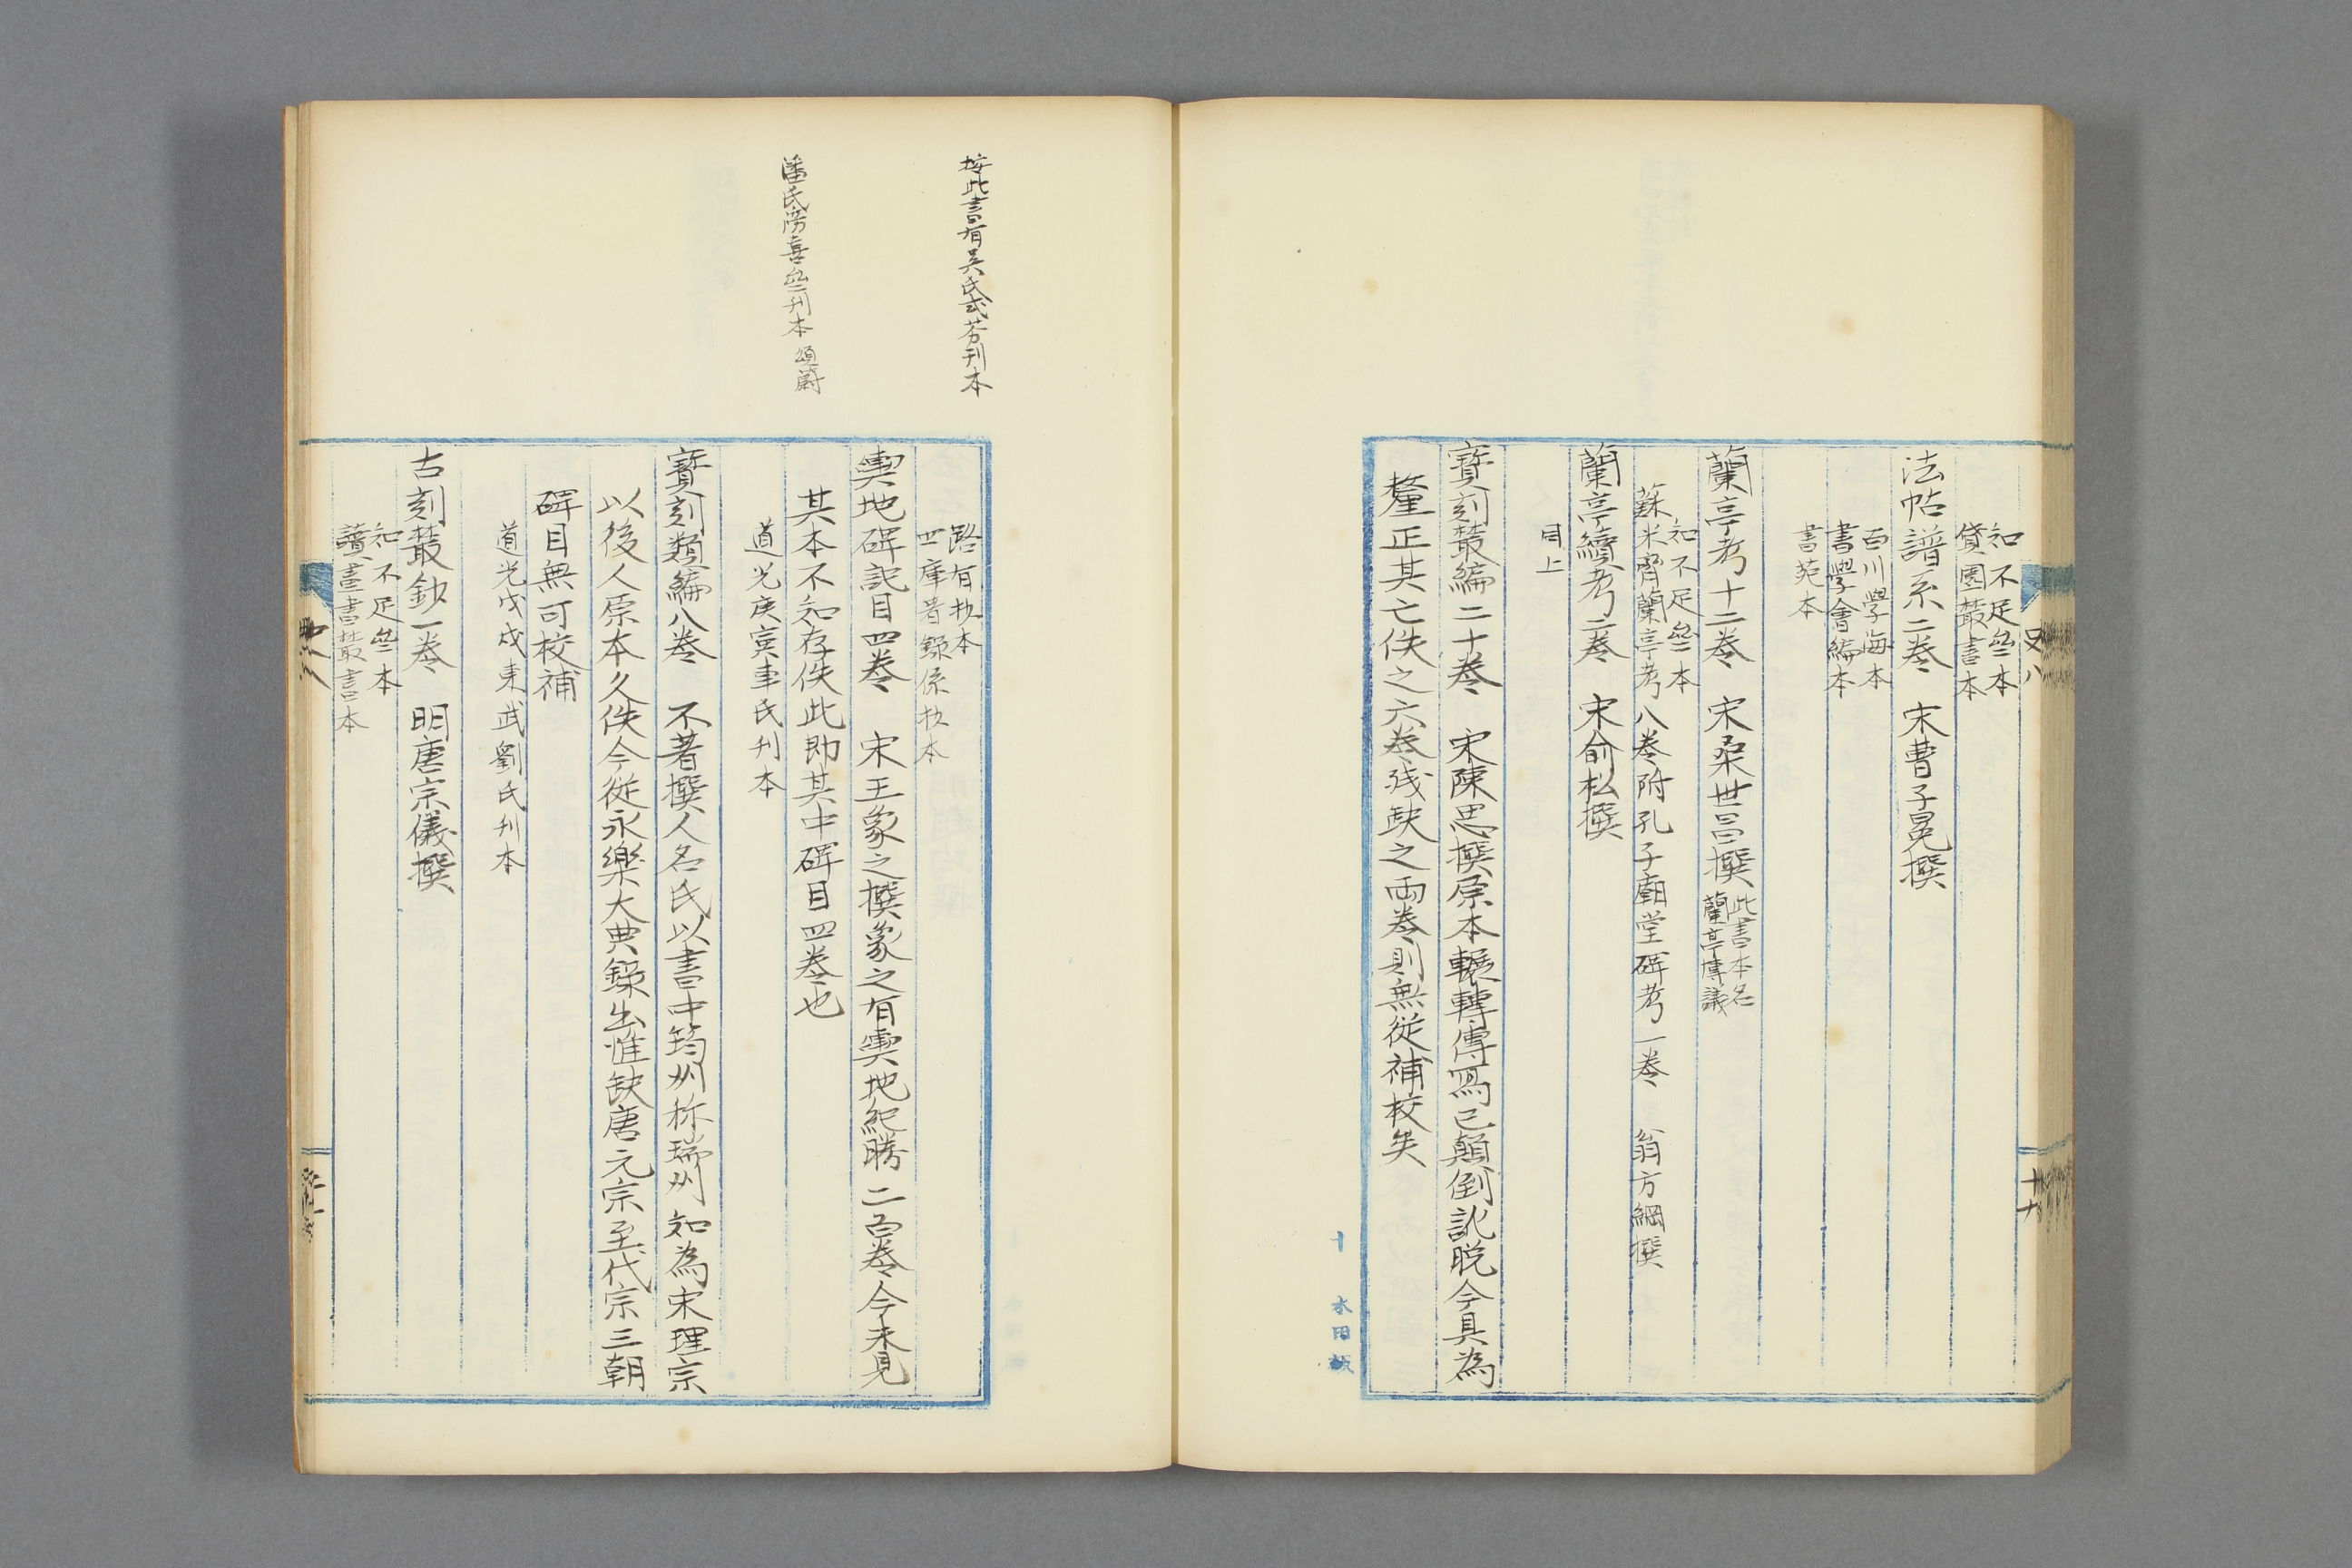 知不足坣本
貸園叢書本
法帖譜系二卷　宋曹士冕撰
百川學海本
書學會編本
書苑本
蘭亭考十二卷　宋桑世昌撰
此書本名
蘭亭博議
知不足坣本
蘇米齋蘭亭考八卷附孔子廟堂碑考一卷　翁方綱撰
蘭亭續考二卷　宋俞松撰
同上
寶刻叢編二十卷　宋陳思撰原本輾轉傳寫已顛倒訛脱今具為
釐正其亡佚之六卷殘缺之兩卷則無從補校矣
十
本田
史八
十九
按此書有吴氏式芬刊本
潘氏滂喜坣刊本
頌蔚
路有抄本
四庫著錄係抄本
輿地碑記目四卷　宋王象之撰象之有輿地紀勝二百卷今未見
其本不知存佚此即其中碑目四卷也
道光庚寅車氏刊本
寶刻類編八卷　不著撰人名氏以書中筠州称瑞州知為宋理宗
以後人原本久佚今從永樂大典錄出惟缺唐元宗至代宗三朝
碑目無可校補
道光戊戌東武劉氏刊本
古刻叢鈔一卷　明唐宗儀撰
知不足坣本
讀畫書叢書本